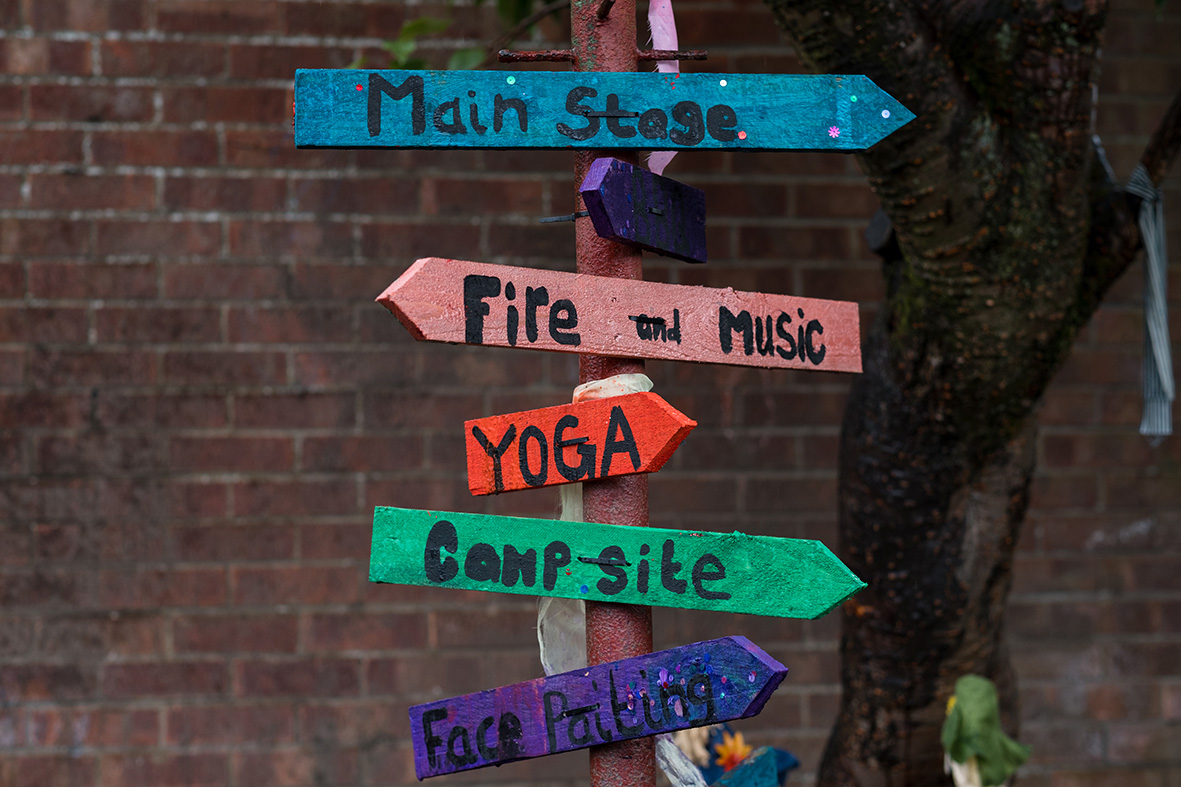 Main Stage
Fire and Music
YOGA
Camp site
Face Paiting